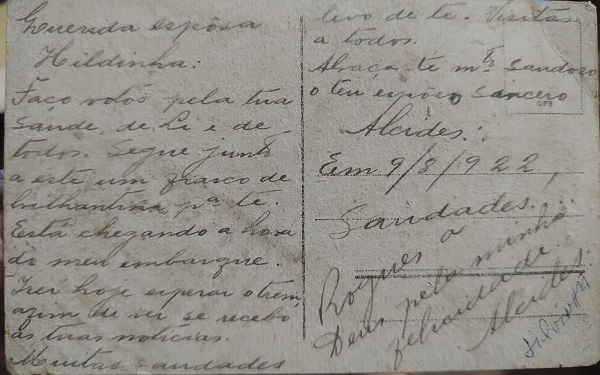 Querida espôsa
Hildinha:
Faço votos pela tua
Saúde, de Li e de
todos. Segue junto
a este um frasco de
brilhantina, pª te.
Está chegando a hora
do meu embarque.
Irei hoje esperar o trem,
azim de ver se recebo
as tuas notícias.
Muitas saudades
levo de te. Visitas
a todos.
Abraça-te mtº Saudoso
o teu espôso Sincero
Alcides.:
Em 9/8/922,
Saudades...
Rogues a
Deus pela minha
felicidade.
Alcides.